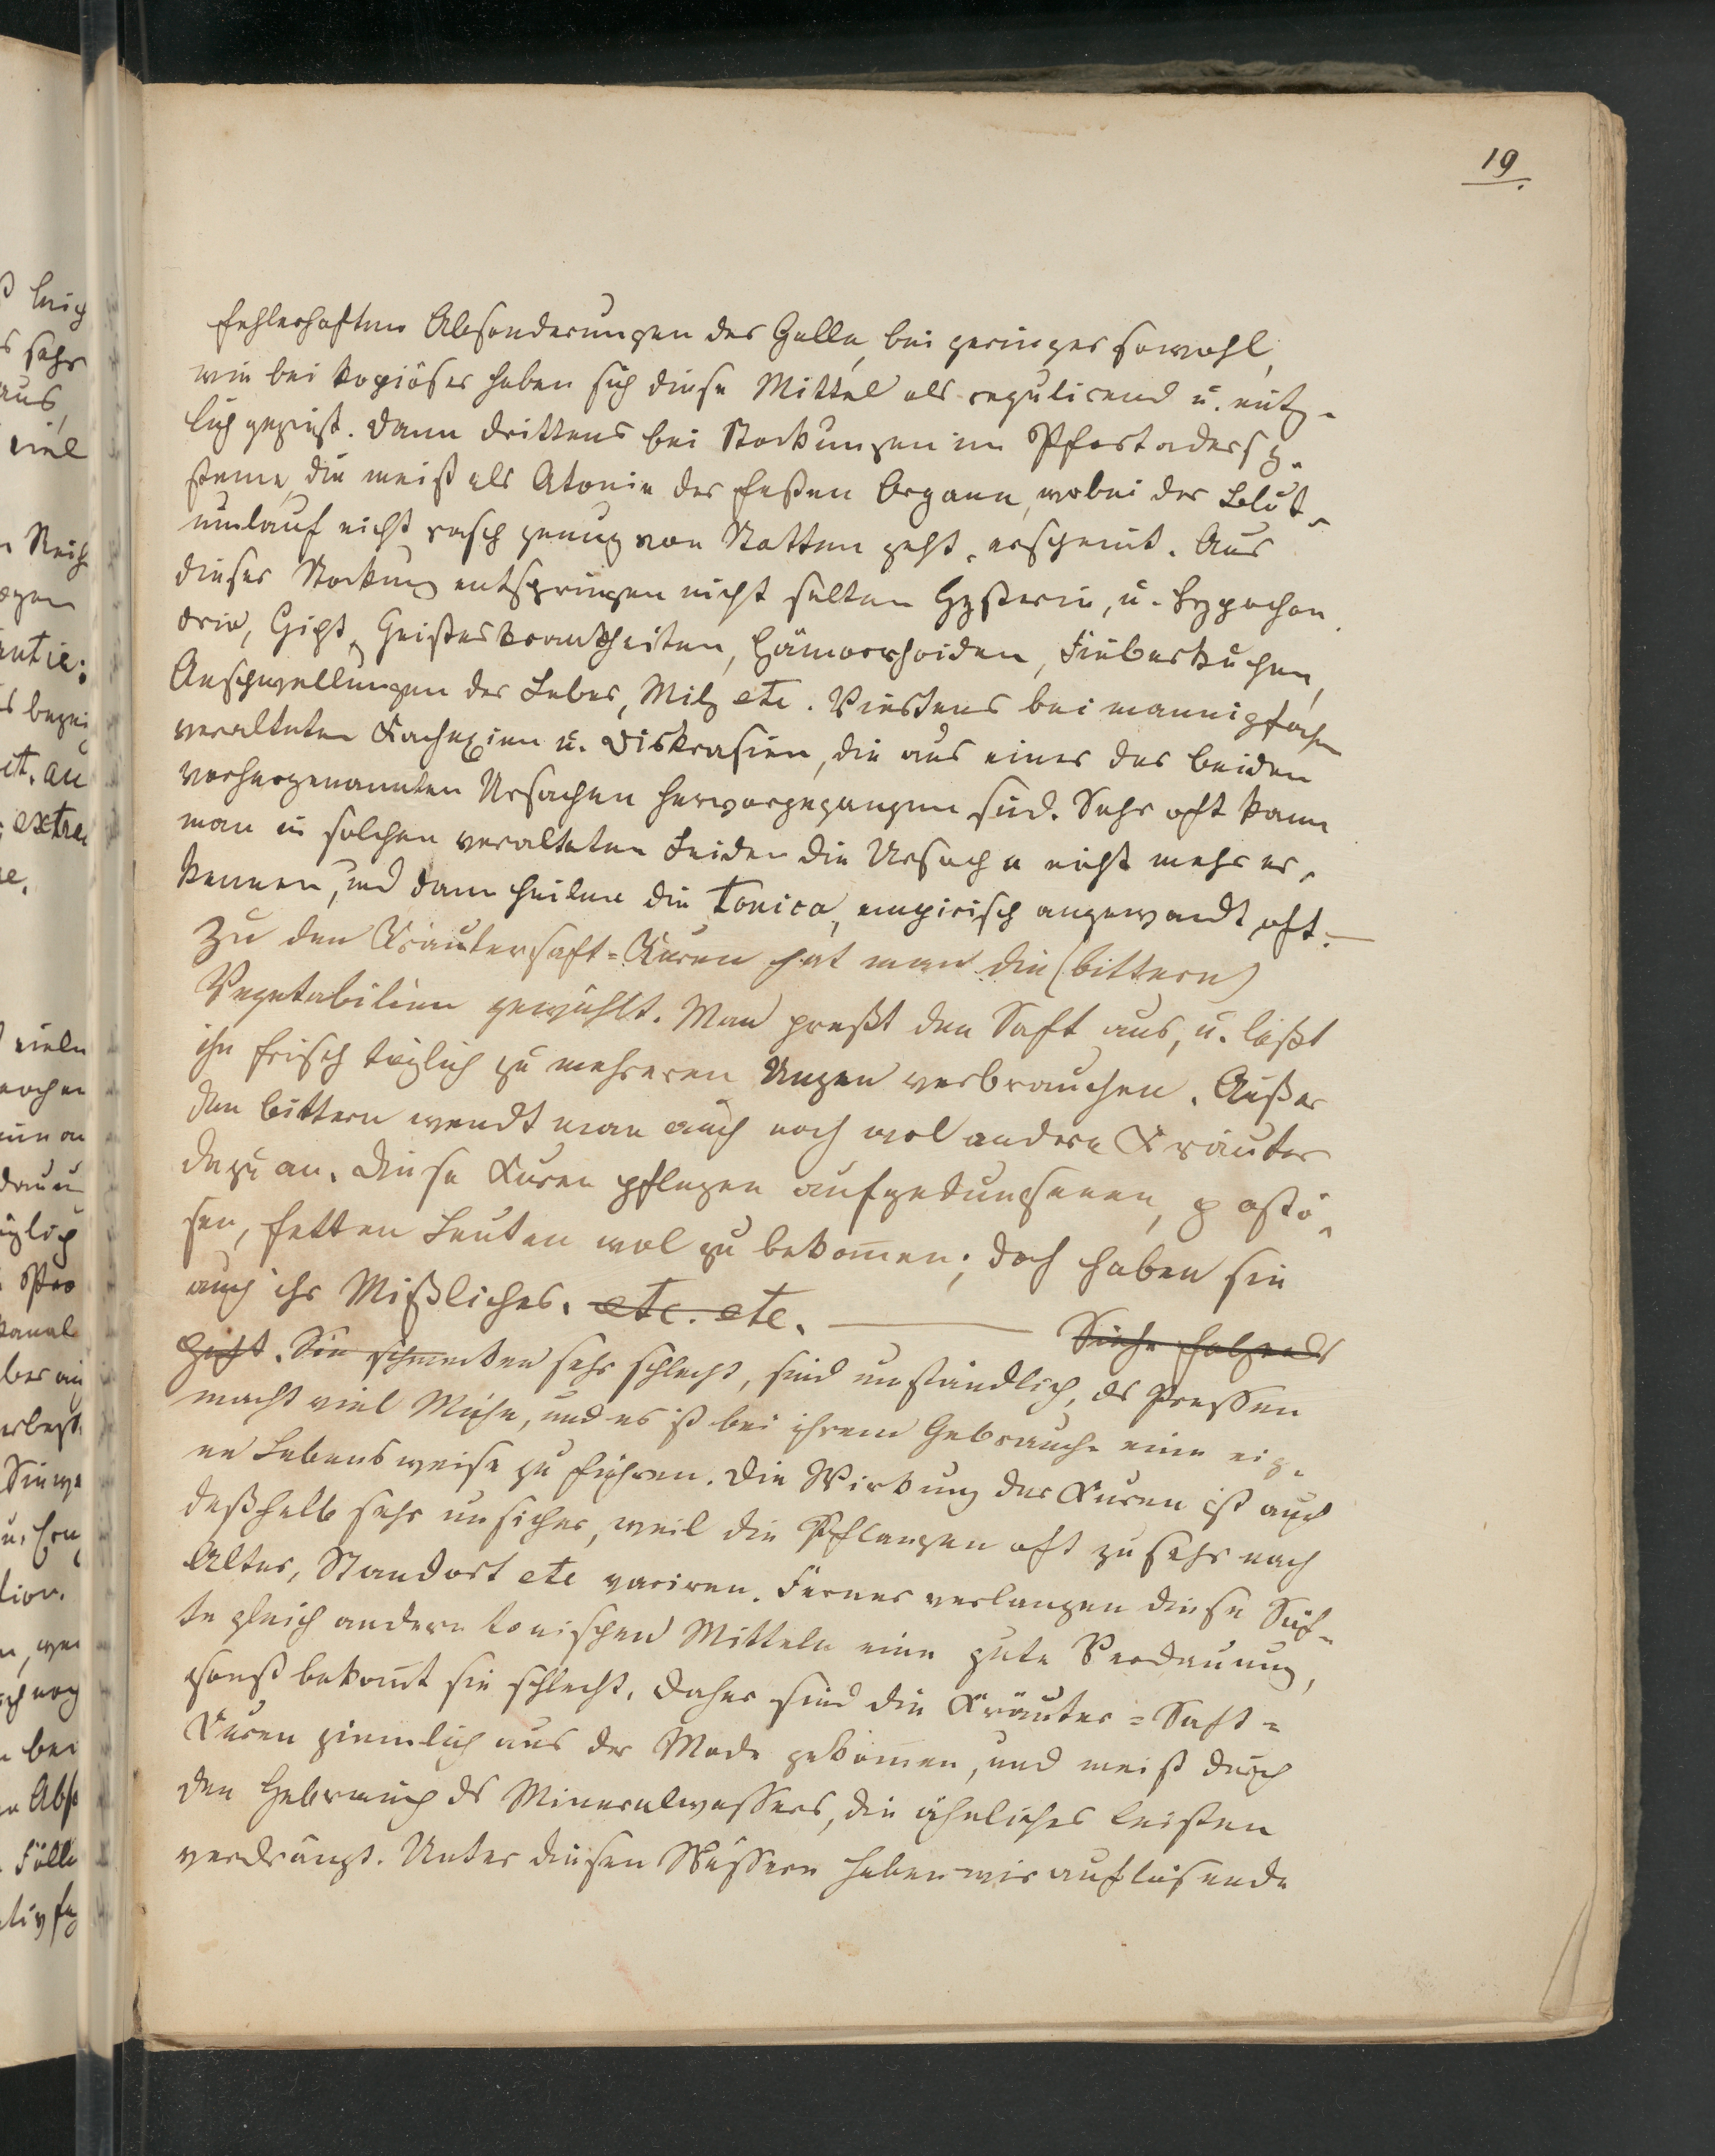 19.
fehlerhaften Absonderungen der Galle, bei geringer sowohl,
wie bei kopiöser haben sich diese Mittel als regulirend u. nütz-
lich gezeigt. Dann drittens bei Stockungen im Pfortadersy-
steme, die meist als Atonie der festen Organe, wobei der Blut-
umlauf nicht rasch genug von Statten geht, erscheint. Aus
dieser Stockung entspringen nicht selten Hysterie, u. Hypochon
drie, Gicht, Geisteskrankheiten, Hämorrhoiden, Fieberkuchen,
Anschwellungen der Leber, Milz etc. Viertens bei mannigfachen
veralteten Kachexien u. Diskrasien, die aus einer der beiden
vorhergenannten Ursachen hervorgegangen sind. Sehr oft kann
man in solchen veralteten Leiden die Ursache nicht mehr er-
kennen, und dann heilen die Tonica, empirisch angewandt oft. —
Zu den Kräutersaft-Kuren hat man die (bittern)
Vegetabilien gewählt. Man preßt den Saft aus, u. läßt
ihn frisch täglich zu mehreren Unzen verbrauchen. Außer
den bittern wendt man auch noch wol andere Kräuter
dazu an. Diese Kuren pflegen aufgedunsenen, pastö-
sen, fetten Leuten wol zu bekommen; doch haben sie
auch ihr Mißliches. etc. etc. — Siehe folgends
Heft. Sie schmecken sehr schlecht, sind umständlich, ds Pressen
macht viel Mühe, und es ist bei ihrem Gebrauche eine eig-
ne Lebensweise zu führen. Die Wirkung der Kuren ist auch
deßhalb sehr unsicher, weil die Pflanzen oft zu sehr nach
Alter, Standort etc variren. Ferner verlangen diese Säf-
te gleich andern tonischen Mitteln eine gute Verdauung,
sonst bekommt sie schlecht. Daher sind die Kräuter-Saft-
Kuren ziemlich aus der Mode gekommen, und meist durch
den Gebrauch ds Mineralwassers, die ähnliches leisten
verdrängt. Unter diesen Wässern haben wir auflösende